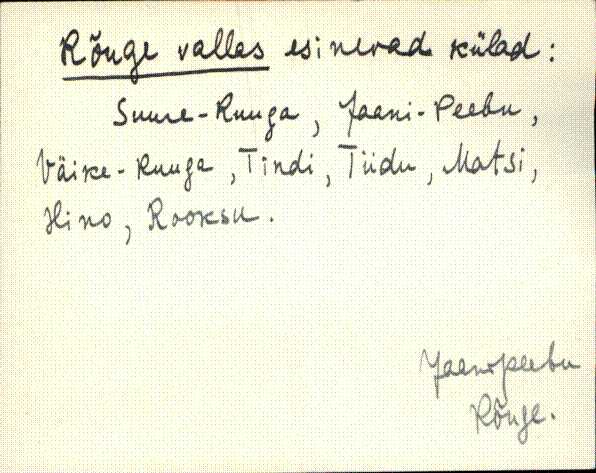 Rõuge vallas esinevad külad:
Suure-Ruuga, Jaani-Peebu,
Väike-Ruuga, Tindi, Tiidu, Matsi,
Hino, Rooksu.
Jaanipeebu
Rõuge.